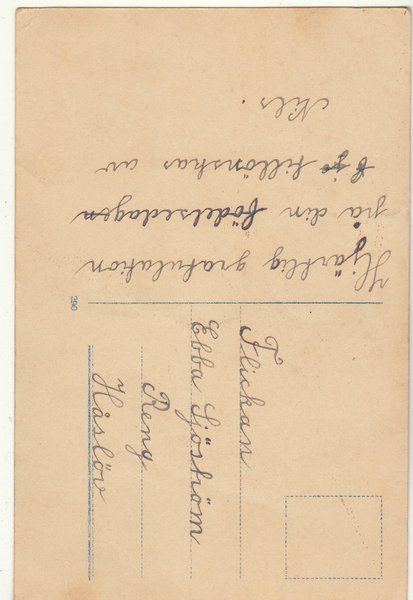 Hjärtlig gratulation
på din födelsedagen
tillönskas av
Nils.
290
Flickan
Ebba Sjöström
Reng
Håslöv